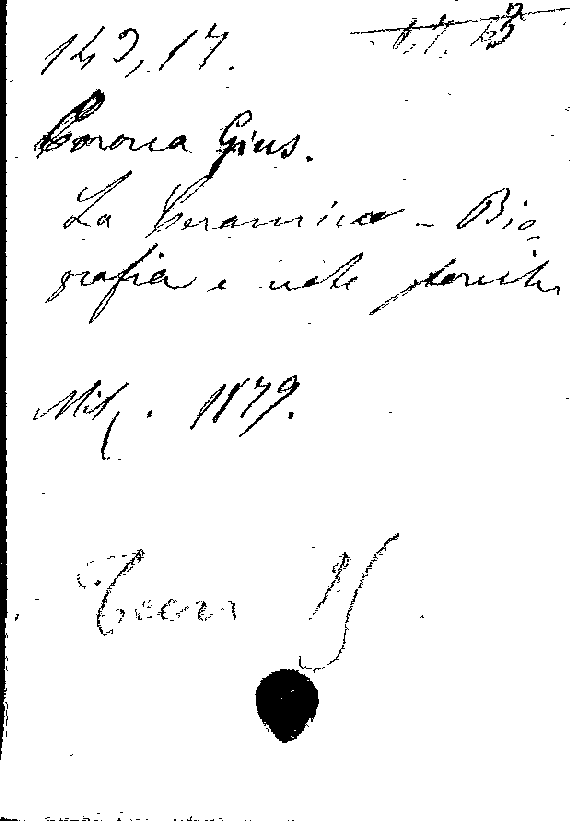 143, 17.
Corona Gius.
La Ceramica - Bio-
grafia e note storiche
Mil. 1879.